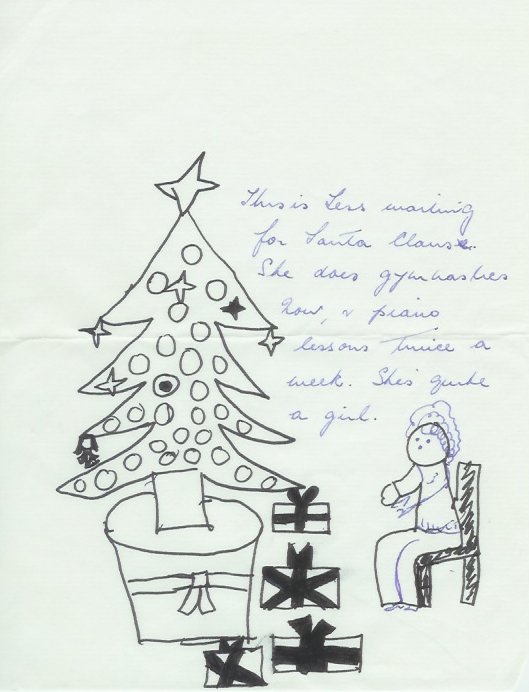 This is Less waiting
for Santa Clause.
She does gymnastics
now, & piano
lessons twice a
week. She's quite
a girl.